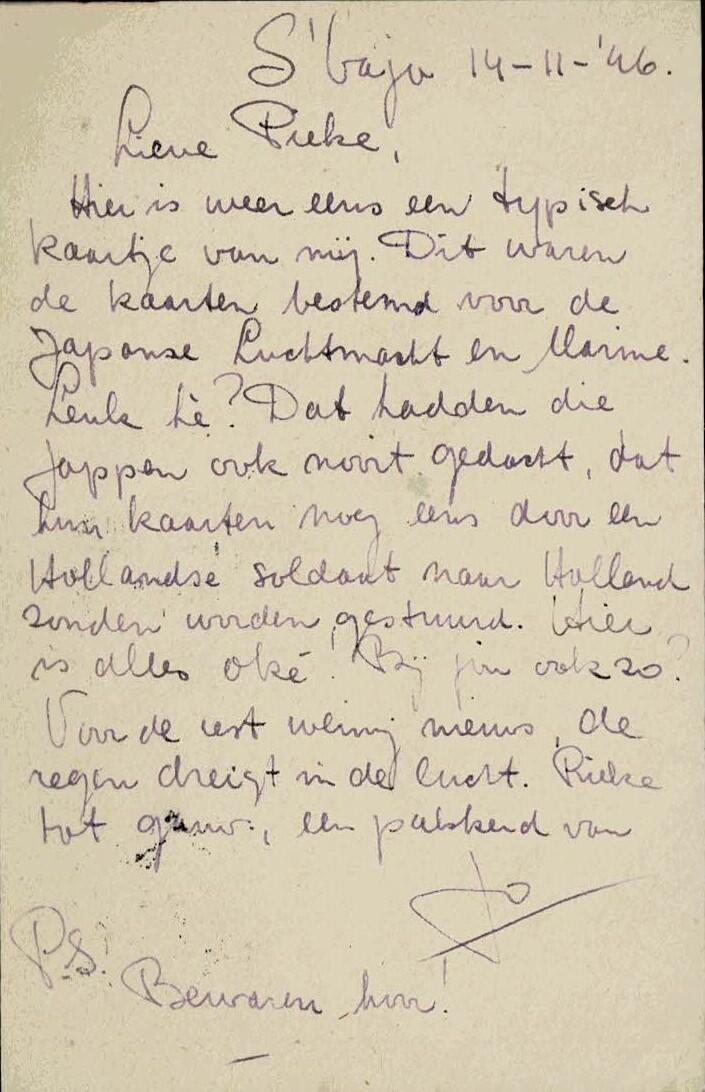 S'baja 14-11-'46.
Lieve Rieke,
Hier is weer eens een typisch
kaartje van mij. Dit waren
de kaarten bestemd voor de
Japanse Luchtmacht en Marine.
Leuk hè? Dat hadden die
Jappen ook nooit gedacht, dat
hun kaarten nog eens door een
Hollandse soldaat naar Holland
zouden worden gestuurd. Hier
is alles oké! Bij jou ook zo?
Voor de rest weinig nieuws, de
regen dreigt in de lucht. Rieke
tot gauw, een pakkerd van
Jo
P.S.
Bewaren hoor!